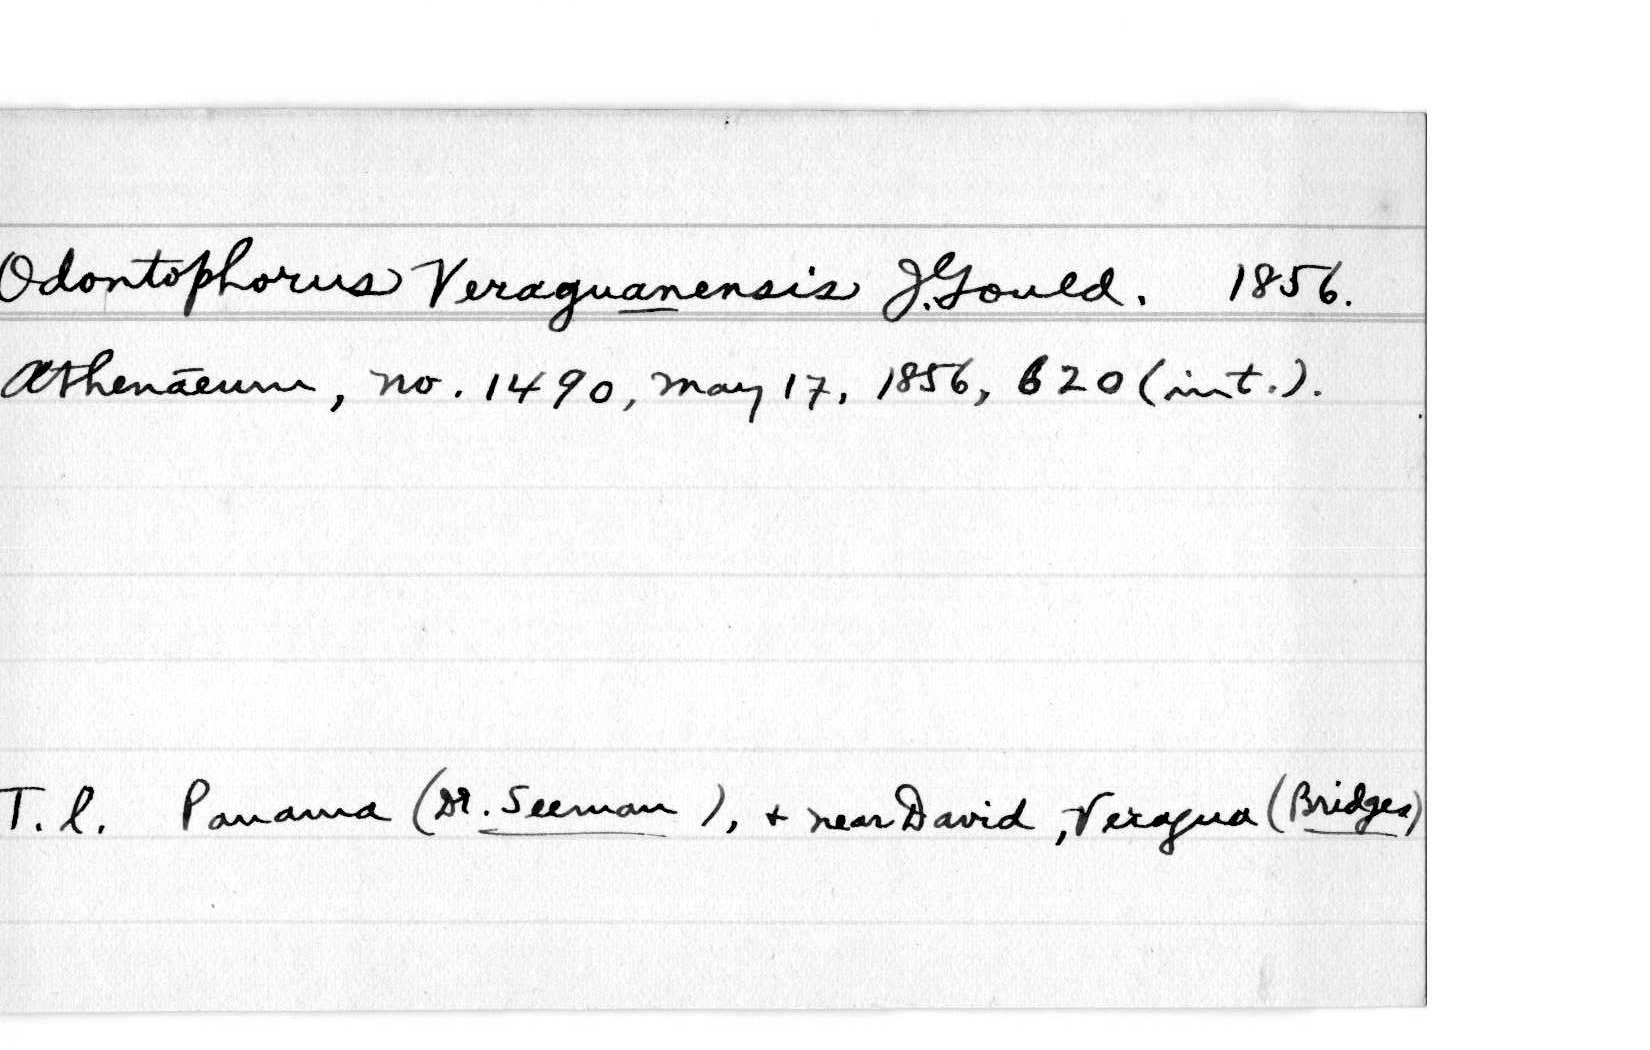 Odontophorus Veraguanensis J. Gould. 1856.
Athenāeum, no. 1490, May 17, 1856, 620 (int.).
T. l. Panama (Dr. Seeman), + near David, Veragua (Bridges)